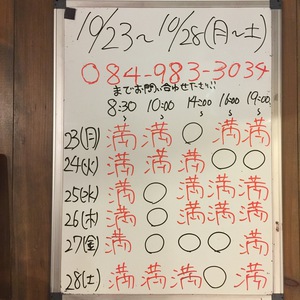 10/23〜10/28(月〜土)
084-983-3034
までお問い合わせ下さい!!
8:30〜 10:00〜 14:00〜 16:00〜 19:00〜
23(月) 満 満 ○ 満 満
24(火) 満 満 満 ○ ○
25(水) 満 ○ 満 満 満
26(木) 満 ○ 満 満 満
27(金) 満 ○ ○ ○ 満
28(土) 満 満 満 ○ 満